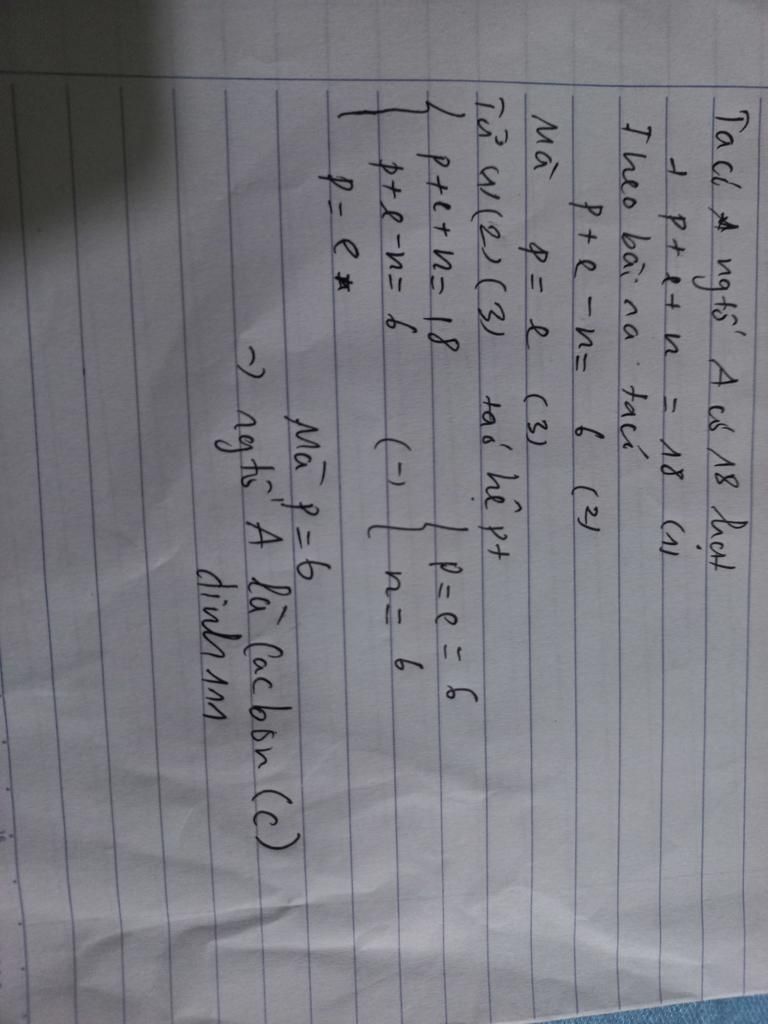 Ta có ngtố A có 18 hạt
+ p + e + n = 18 (1)
Theo bài ra ta có
p + e - n = 6 (2)
Mà p = e (3)
Từ (1) (2) (3) ta có hệ pt
p + e + n = 18
p + e - n = 6
p = e
(-) p = e = 6
n = 6
Mà p = 6
-) ngtố A là Cacbon (C)